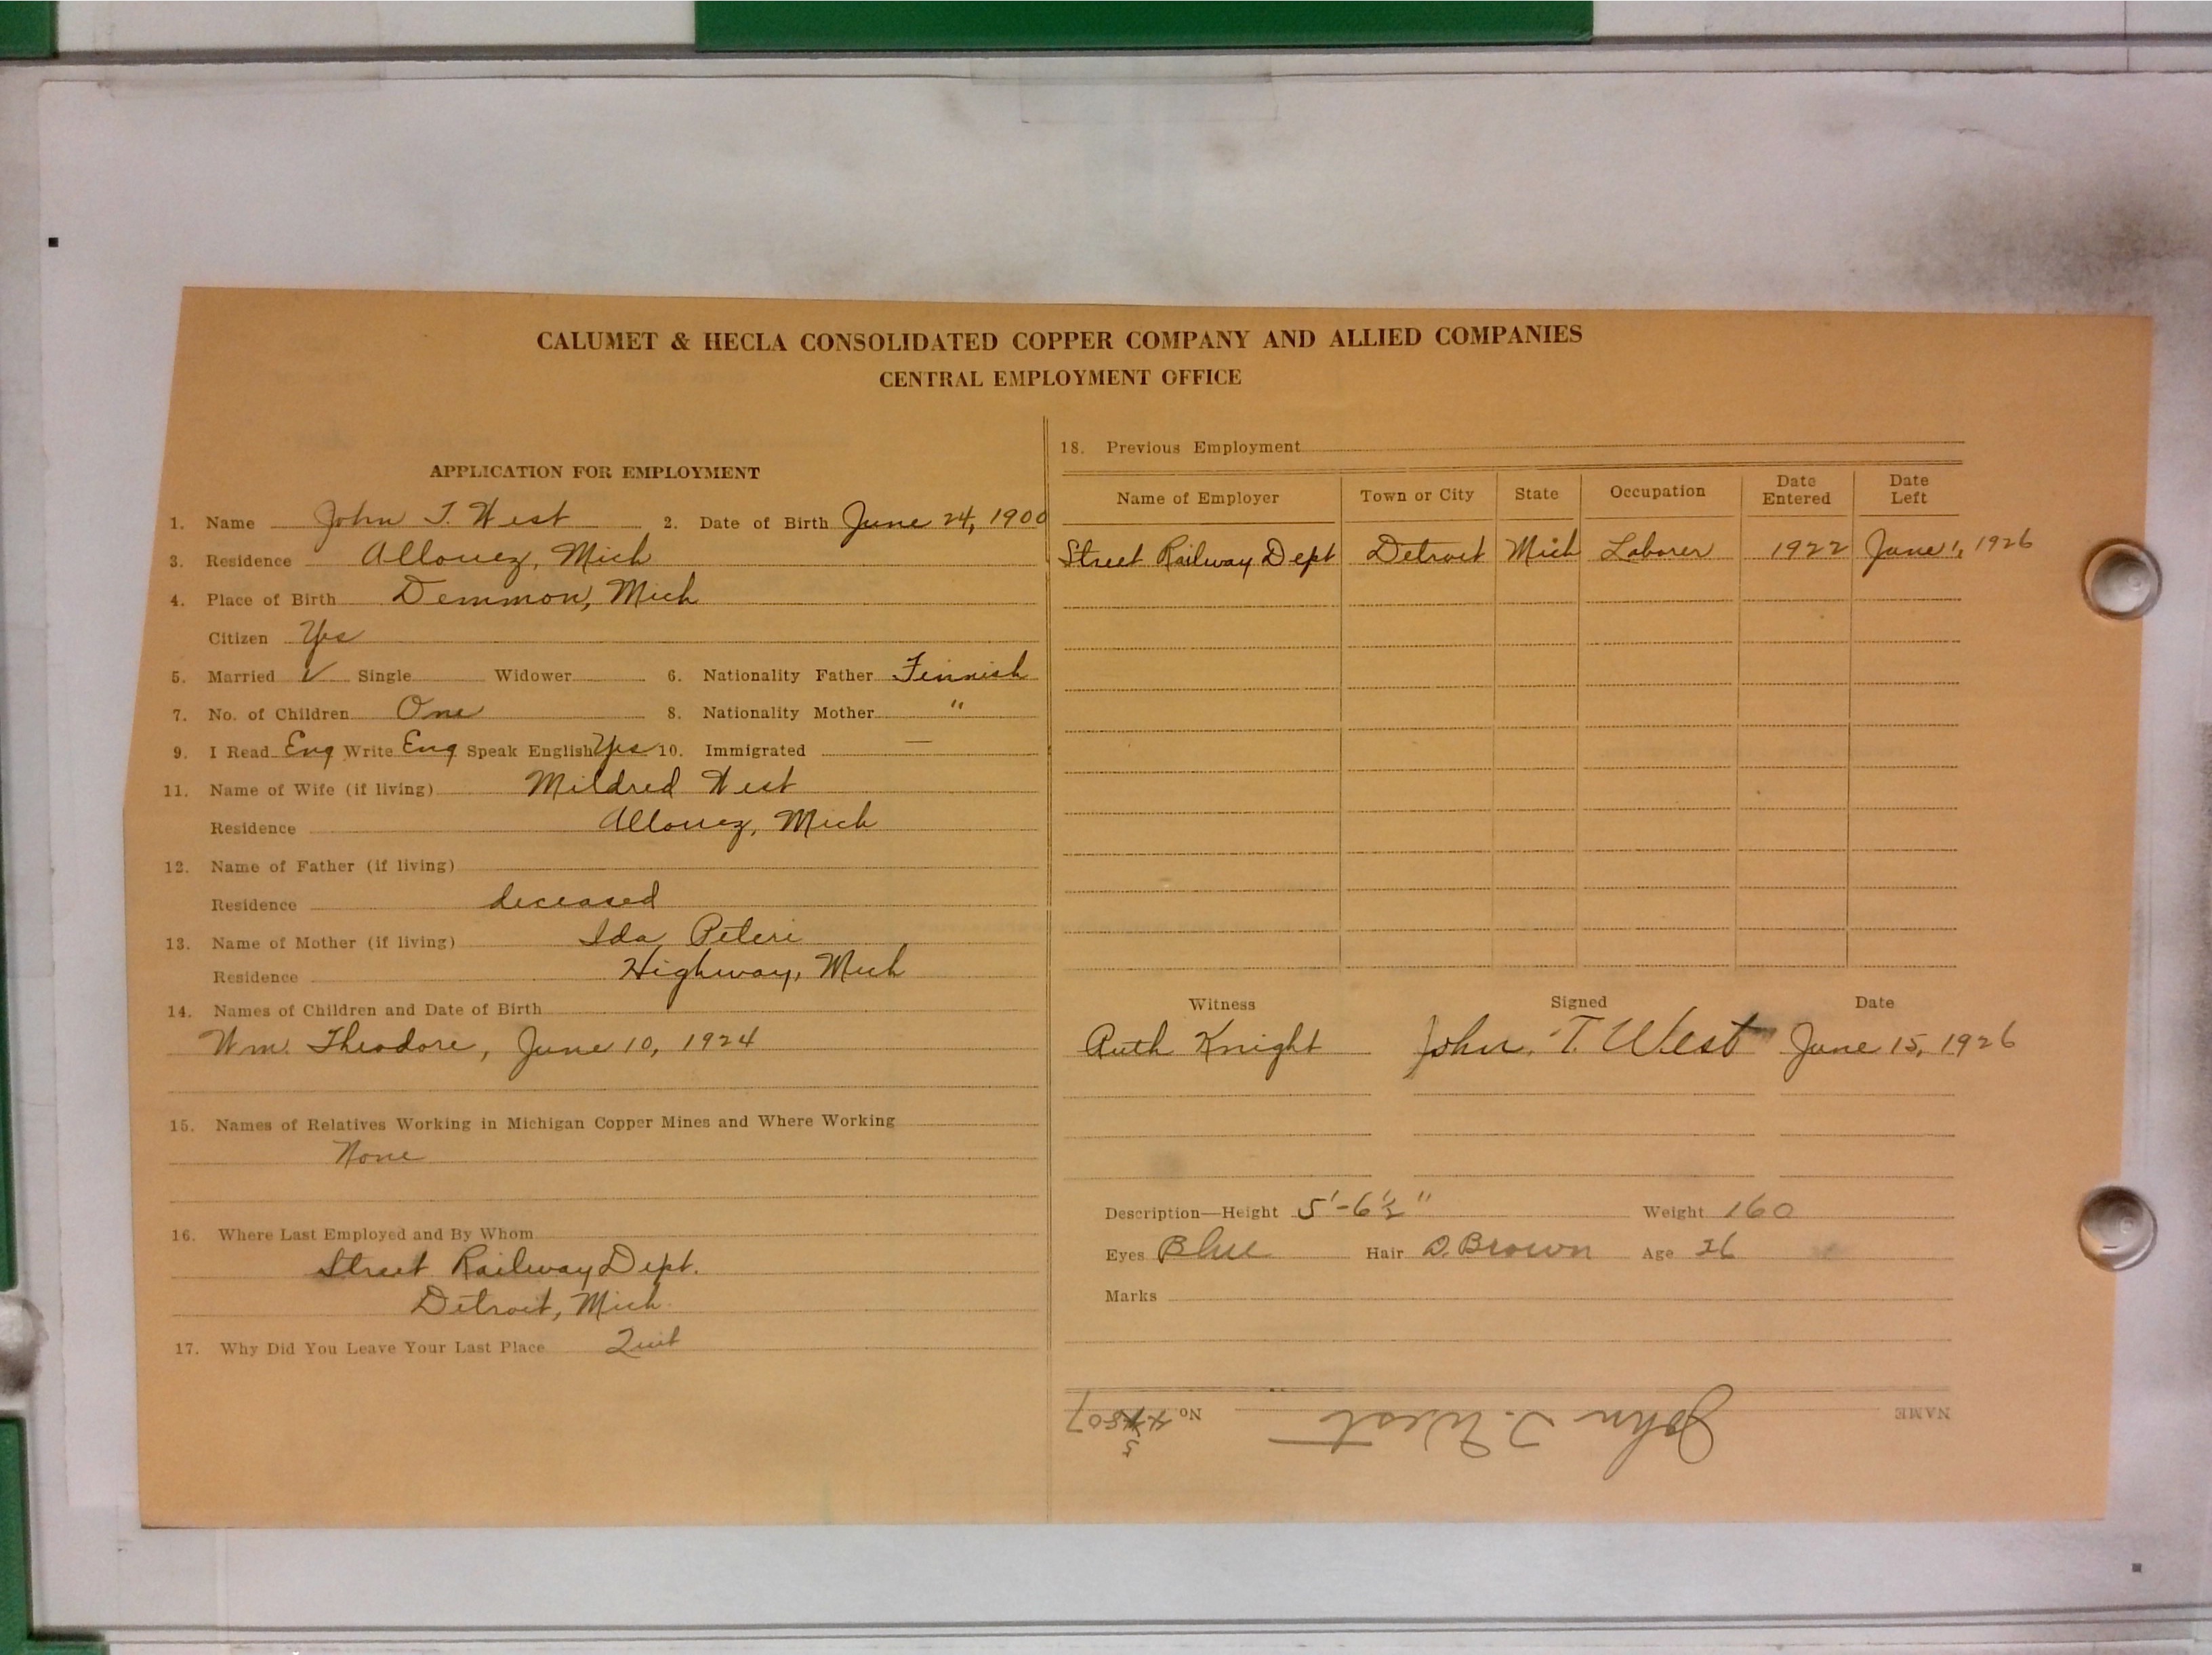 CALUMET & HECLA CONSOLIDATED COPPER COMPANY AND ALLIED COMPANIES
CENTRAL EMPLOYMENT OFFICE
APPLICATION FOR EMPLOYMENT
1. Name John T. West 2. Date of Birth June 24, 1900
3. Residence Allouez, Mich
4. Place of Birth Demmon, Mich
Citizen Yes
5. Married ✓ Single Widower 6. Nationality Father Finnish
7. No. of Children One 8. Nationality Mother "
9. I Read Eng Write Eng Speak English Yes 10. Immigrated —
11. Name of Wife (if living) Mildred West
Residence Allouez, Mich
12. Name of Father (if living)
Residence deceased
13. Name of Mother (if living) Ida Peteri
Residence Highway, Mich
14. Names of Children and Date of Birth
Wm. Theodore, June 10, 1924
15. Names of Relatives Working in Michigan Copper Mines and Where Working
None
16. Where Last Employed and By Whom
Street Railway Dept.
Detroit, Mich.
17. Why Did You Leave Your Last Place Quit
18. Previous Employment
Name of Employer Town or City State Occupation Date Entered Date Left
Street Railway Dept Detroit Mich Laborer 1922 June 1, 1926
Witness Signed Date
Ruth Knight John. T. West June 15, 1926
Description—Height 5'-6½" Weight 160
Eyes Blue Hair D. Brown Age 26
Marks
NAME John T. West No.